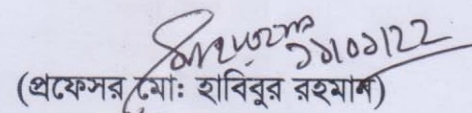 ১১/০১/২২
(প্রফেসর মোঃ হাবিবুর রহমান)